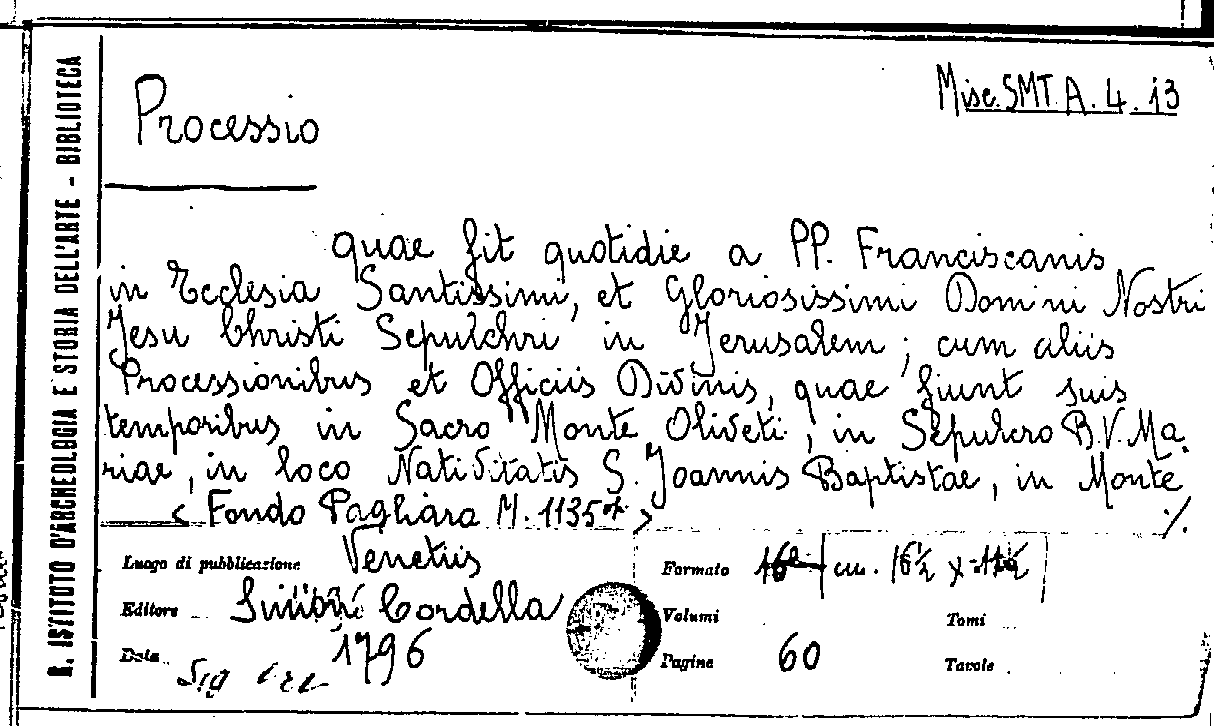 R. ISTITUTO D'ARCHEOLOGIA E STORIA DELL'ARTE - BIBLIOTECA
Misc. SMT. A. 4. 13
Processio
quae fit quotidie a PP. Franciscanis
in Ecclesia Santissimi, et Gloriosissimi Domini Nostri
Jesu Christi Sepulchri in Jerusalem; cum aliis
Processionibus et Officiis Divinis, quae fiunt suis
temporibus in Sacro Monte Oliveti, in Sepulcro B.V. Ma
riae, in loco Nativitatis S. Joannis Baptistae, in Monte
< Fondo Pagliara M. 1135 > ./.
Luogo di pubblicazione Venetiis
Editore Cordella
Data 1796
Formato cm. 16½ x
Volumi Tomi
Pagine 60 Tavole